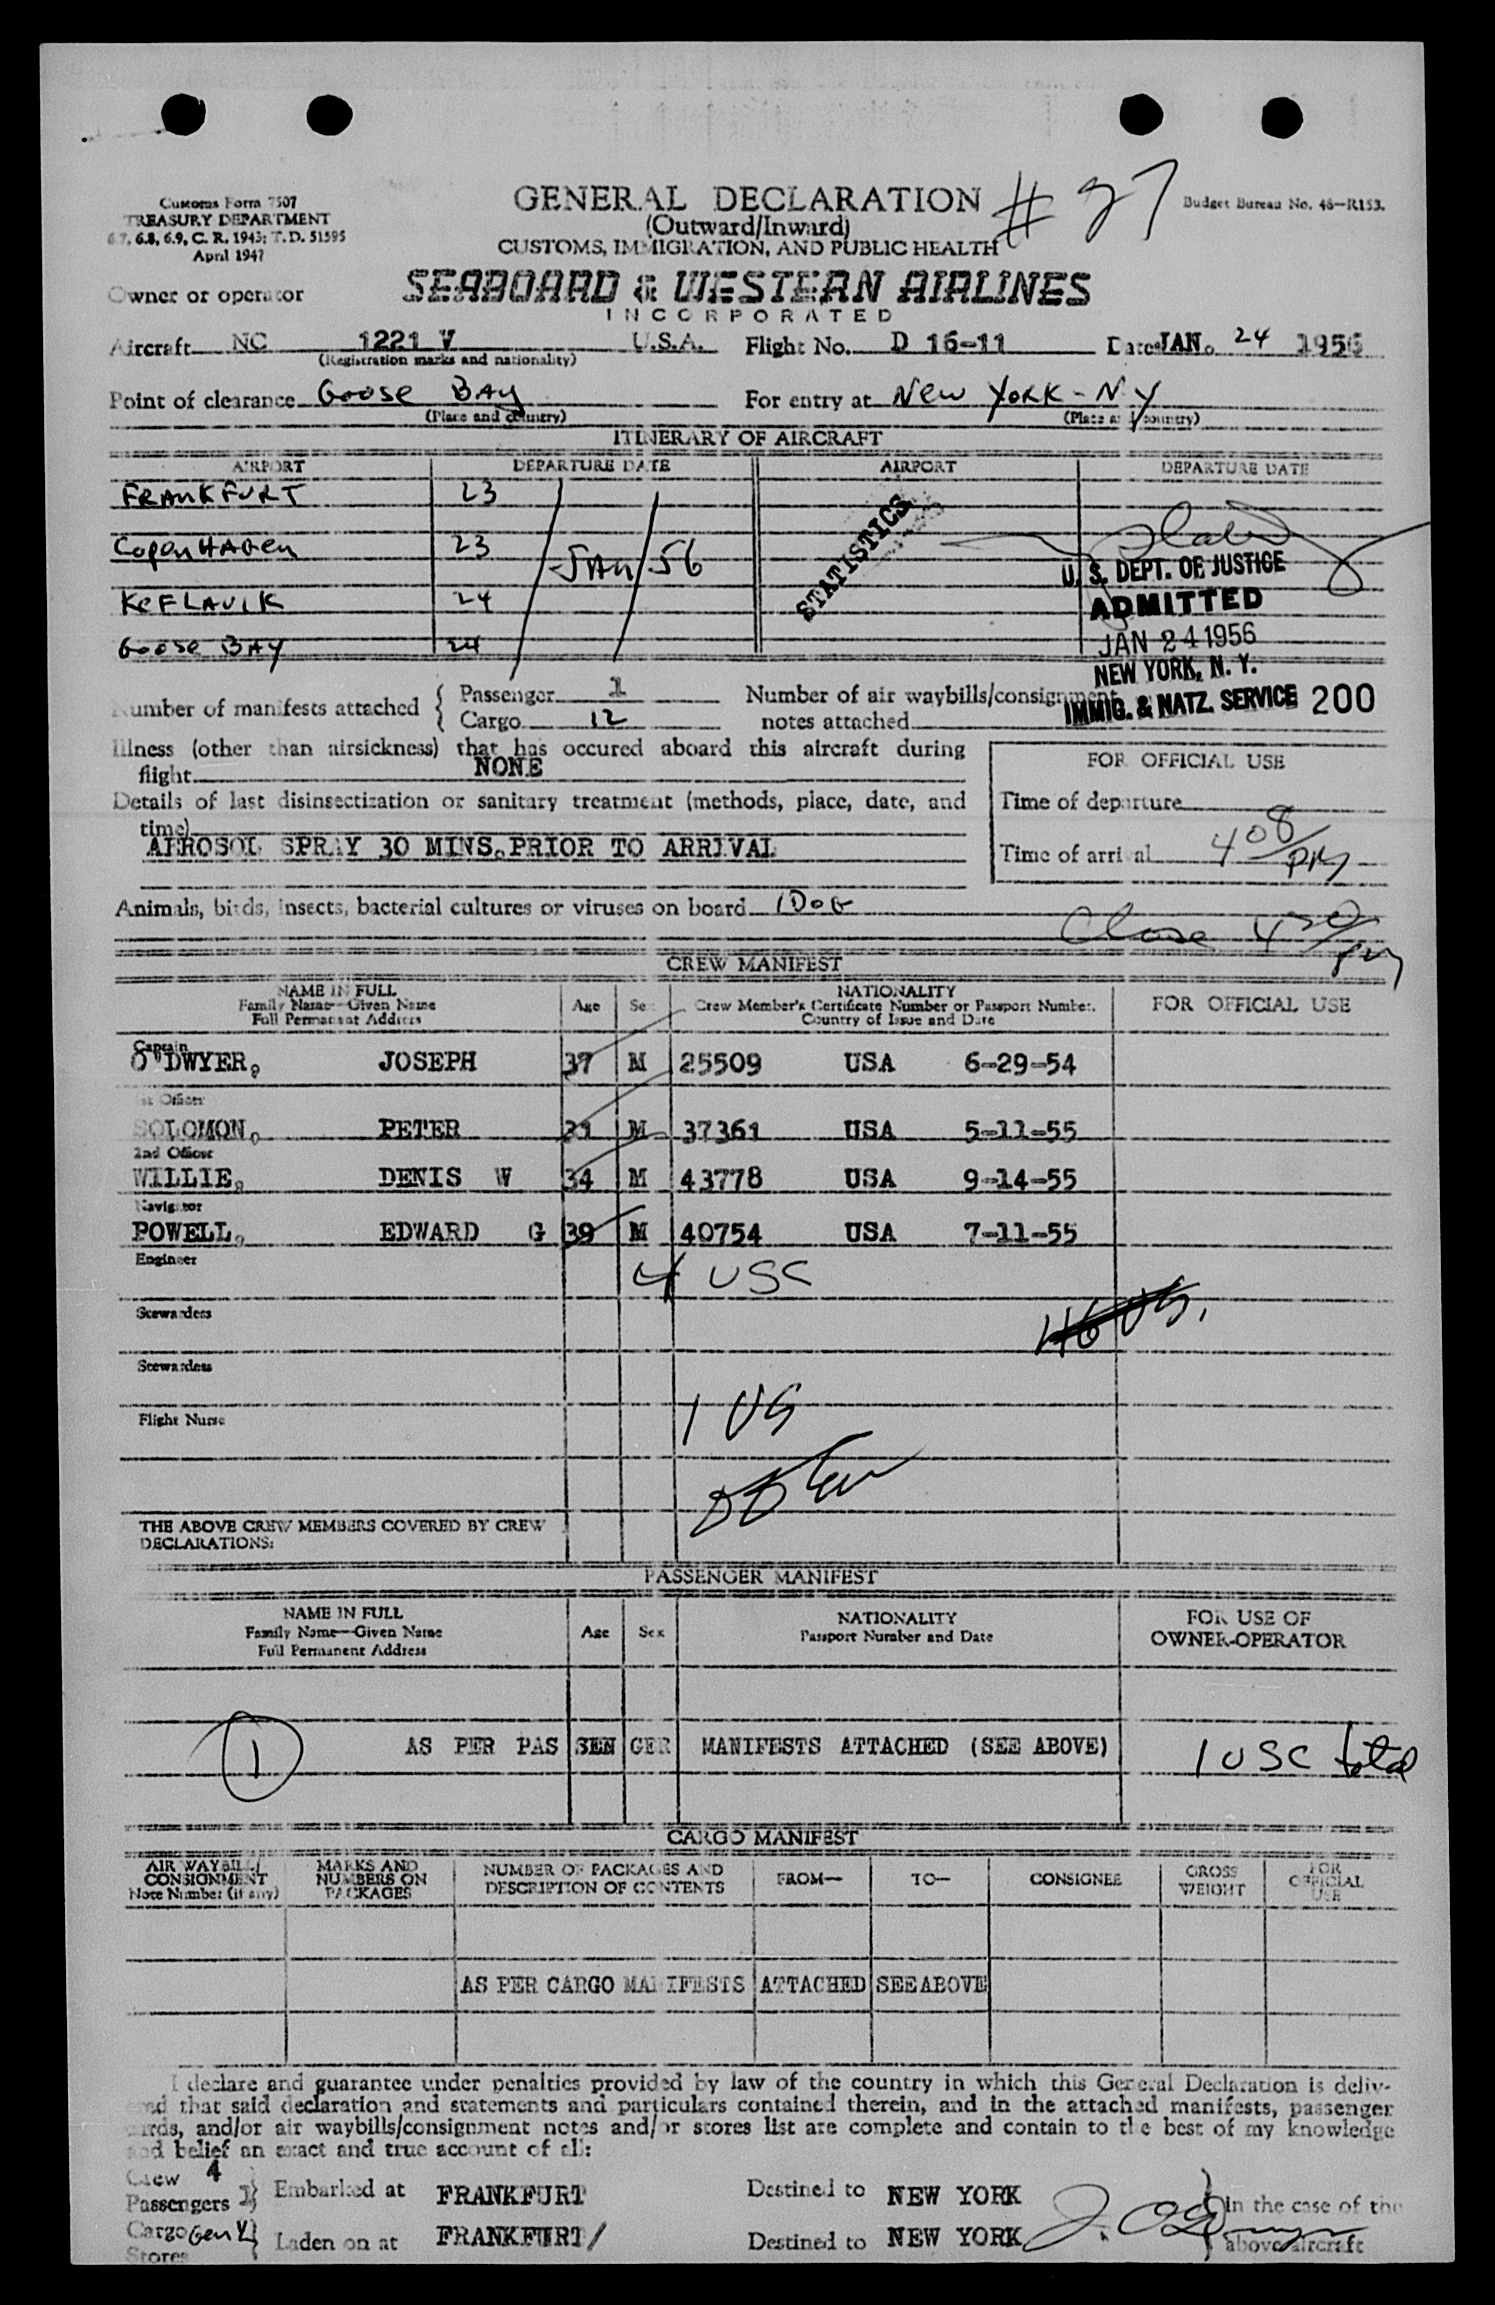 Customs Form 7507
TREASURY DEPARTMENT
6.7, 6.8, 6.9, C. R. 1943; T. D. 51595
April 1947
GENERAL DECLARATION
(Outward/Inward)
CUSTOMS, IMMIGRATION, AND PUBLIC HEALTH
# 27
Budget Bureau No. 48—R153.
Owner or operator SEABOARD & WESTERN AIRLINES
INCORPORATED
Aircraft NC 1221 V U.S.A. Flight No. D 16-11 Date JAN. 24 1956
(Registration marks and nationality)
Point of clearance Goose BAy For entry at New York - N Y
(Place and country) (Place and country)
ITINERARY OF AIRCRAFT
AIRPORT DEPARTURE DATE AIRPORT DEPARTURE DATE
FRANKFURT 23
CopenHAGen 23 / JAN / 56
KeFLAVIK 24
Goose BAY 24
STATISTICS
U. S. DEPT. OF JUSTICE
ADMITTED
JAN 24 1956
NEW YORK, N. Y.
IMMIG. & NATZ. SERVICE 200
Number of manifests attached { Passenger 1 Number of air waybills/consignment
Cargo 12 notes attached
Illness (other than airsickness) that has occured aboard this aircraft during
flight NONE
Details of last disinsectization or sanitary treatment (methods, place, date, and
time)
AEROSOL SPRAY 30 MINS. PRIOR TO ARRIVAL
FOR OFFICIAL USE
Time of departure
Time of arrival 4 08/PM
Animals, birds, insects, bacterial cultures or viruses on board 1 DoG
Close 4 30/PM
CREW MANIFEST
NAME IN FULL
Family Name—Given Name
Full Permanent Address
Age Sex
NATIONALITY
Crew Member's Certificate Number or Passport Number.
Country of Issue and Date
FOR OFFICIAL USE
Captain
O'DWYER, JOSEPH 37 M 25509 USA 6-29-54
1st Officer
SOLOMON, PETER 31 M 37361 USA 5-11-55
2nd Officer
WILLIE, DENIS W 34 M 43778 USA 9-14-55
Navigator
POWELL, EDWARD G 39 M 40754 USA 7-11-55
Engineer
4 USC
Stewardess
Stewardess
Flight Nurse
1 US
THE ABOVE CREW MEMBERS COVERED BY CREW
DECLARATIONS:
PASSENGER MANIFEST
NAME IN FULL
Family Name—Given Name
Full Permanent Address
Age Sex
NATIONALITY
Passport Number and Date
FOR USE OF
OWNER-OPERATOR
1 AS PER PASSENGER MANIFESTS ATTACHED (SEE ABOVE) 1 USC total
CARGO MANIFEST
AIR WAYBILL/
CONSIGNMENT
Note Number (if any)
MARKS AND
NUMBERS ON
PACKAGES
NUMBER OF PACKAGES AND
DESCRIPTION OF CONTENTS
FROM— TO— CONSIGNEE
GROSS
WEIGHT
FOR
OFFICIAL
USE
AS PER CARGO MANIFESTS ATTACHED SEE ABOVE
I declare and guarantee under penalties provided by law of the country in which this General Declaration is deliv-
ed that said declaration and statements and particulars contained therein, and in the attached manifests, passenger
cards, and/or air waybills/consignment notes and/or stores list are complete and contain to the best of my knowledge
and belief an exact and true account of all:
Crew 4
Passengers 1 } Embarked at FRANKFURT Destined to NEW YORK
Cargo Gen
Stores } Laden on at FRANKFURT/ Destined to NEW YORK
J. O'Dwyer
in the case of the
above aircraft